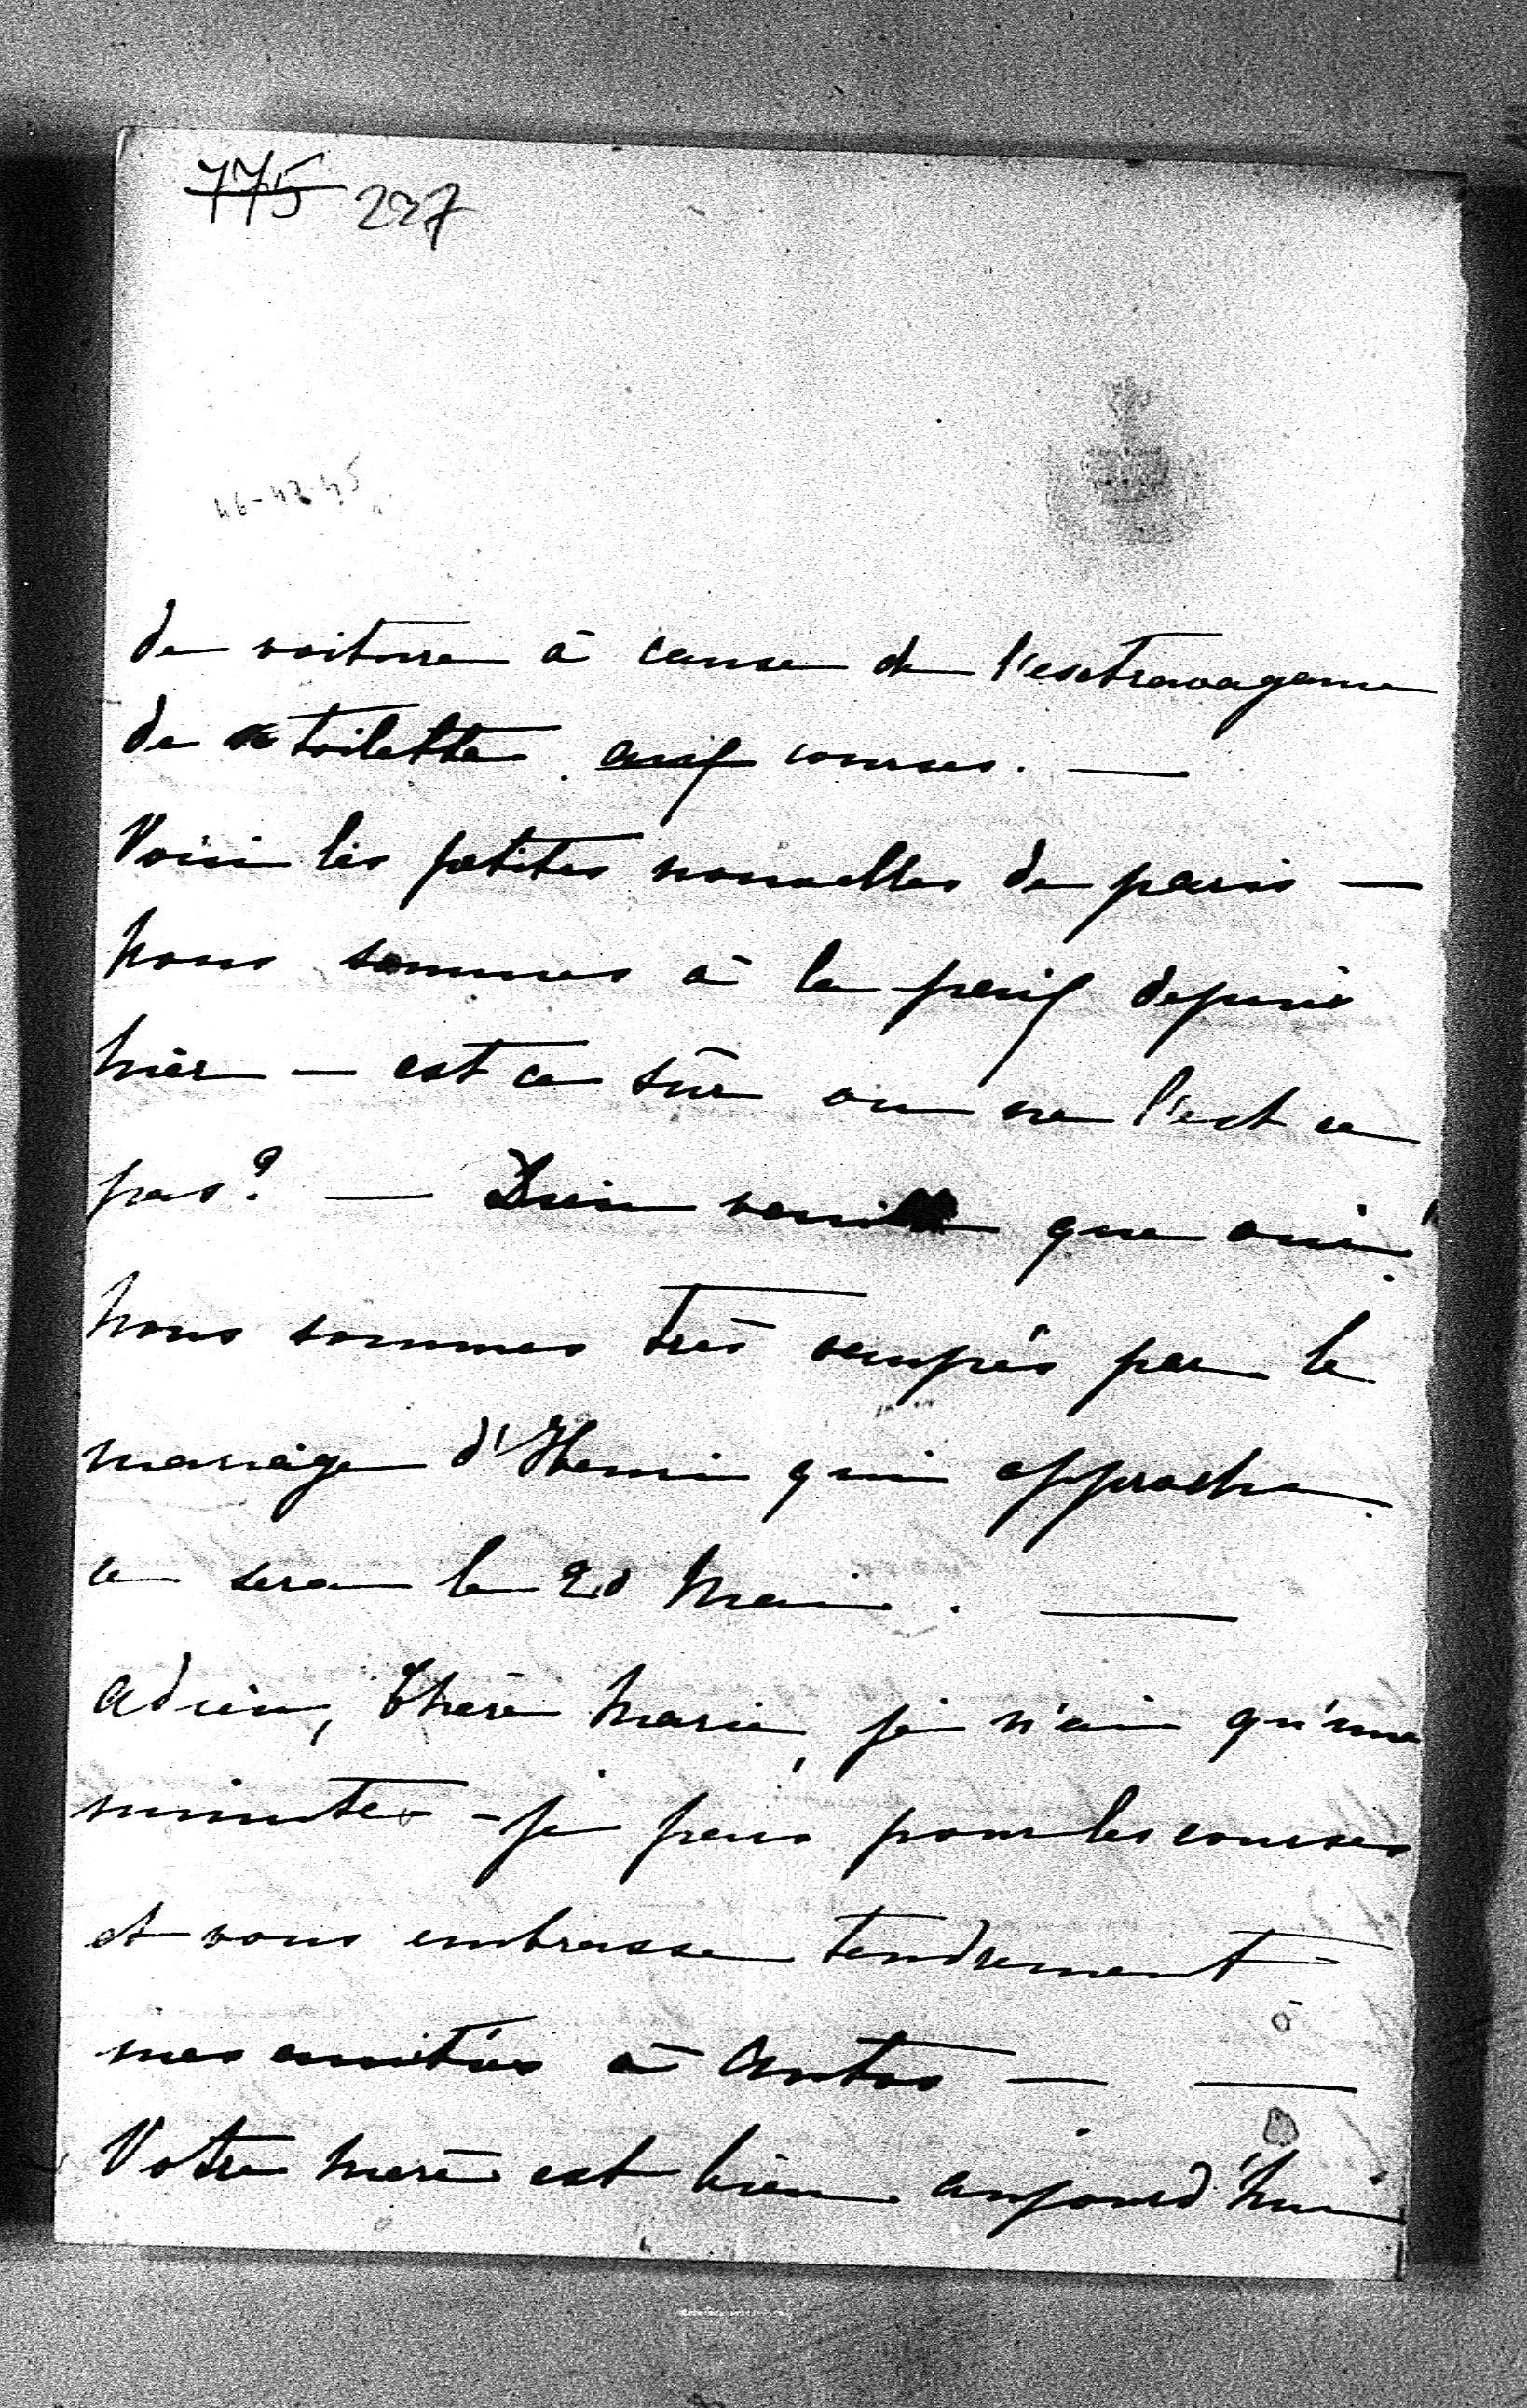 775 227
46-48.45
de voiture à cause de l'extravagance
de toilette aux courses. —
Voici les petites nouvelles de paris —
Nous sommes à la paix depuis
hier — est ce sûr ou ne l'est ce
pas? — Dieu veuille que oui!
Nous sommes très occupés par le
mariage d'Henri qui approche.
ce sera le 20 Mai. —
Adieu, Chère Marie, je n'ai qu'une
minute - je pars pour les courses
et vous embrasse tendrement
mes amitiés à Antos — —
Votre mère est bien aujourd'hui